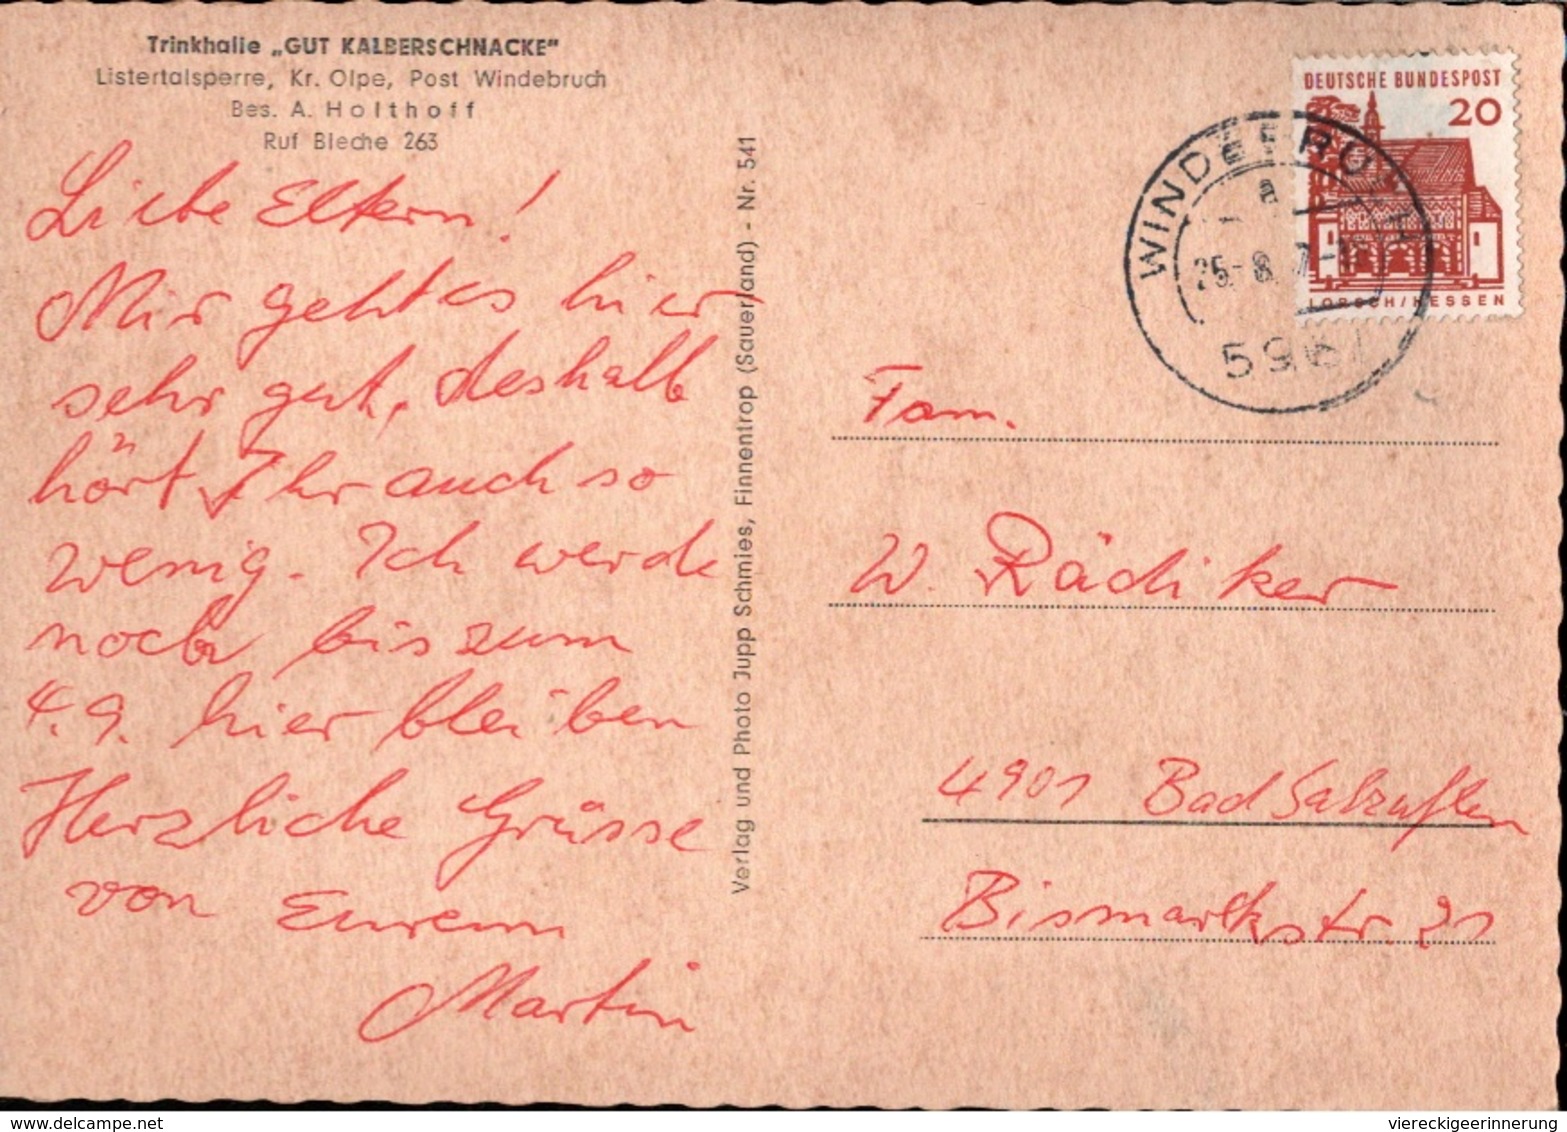 Trinkhalle „GUT KALBERSCHNACKE"
Listertalsperre, Kr. Olpe, Post Windebruch
Bes. A. Holthoff
Ruf Bleche 263
Liebe Eltern!
Mir geht es hier
sehr gut, deshalb
hört Ihr auch so
wenig. Ich werde
noch bis zum
4.9. hier bleiben
Herzliche Grüsse
von Eurem
Martin
Verlag und Photo Jupp Schmies, Finnentrop (Sauerland) - Nr. 541
DEUTSCHE BUNDESPOST
20
LORSCH/HESSEN
WINDEBRUCH
a
25.-8.
Fam.
W. Rädiker
4901 Bad Salzuflen
Bismarckstr. 21
delcampe.net
viereckigeerinnerung